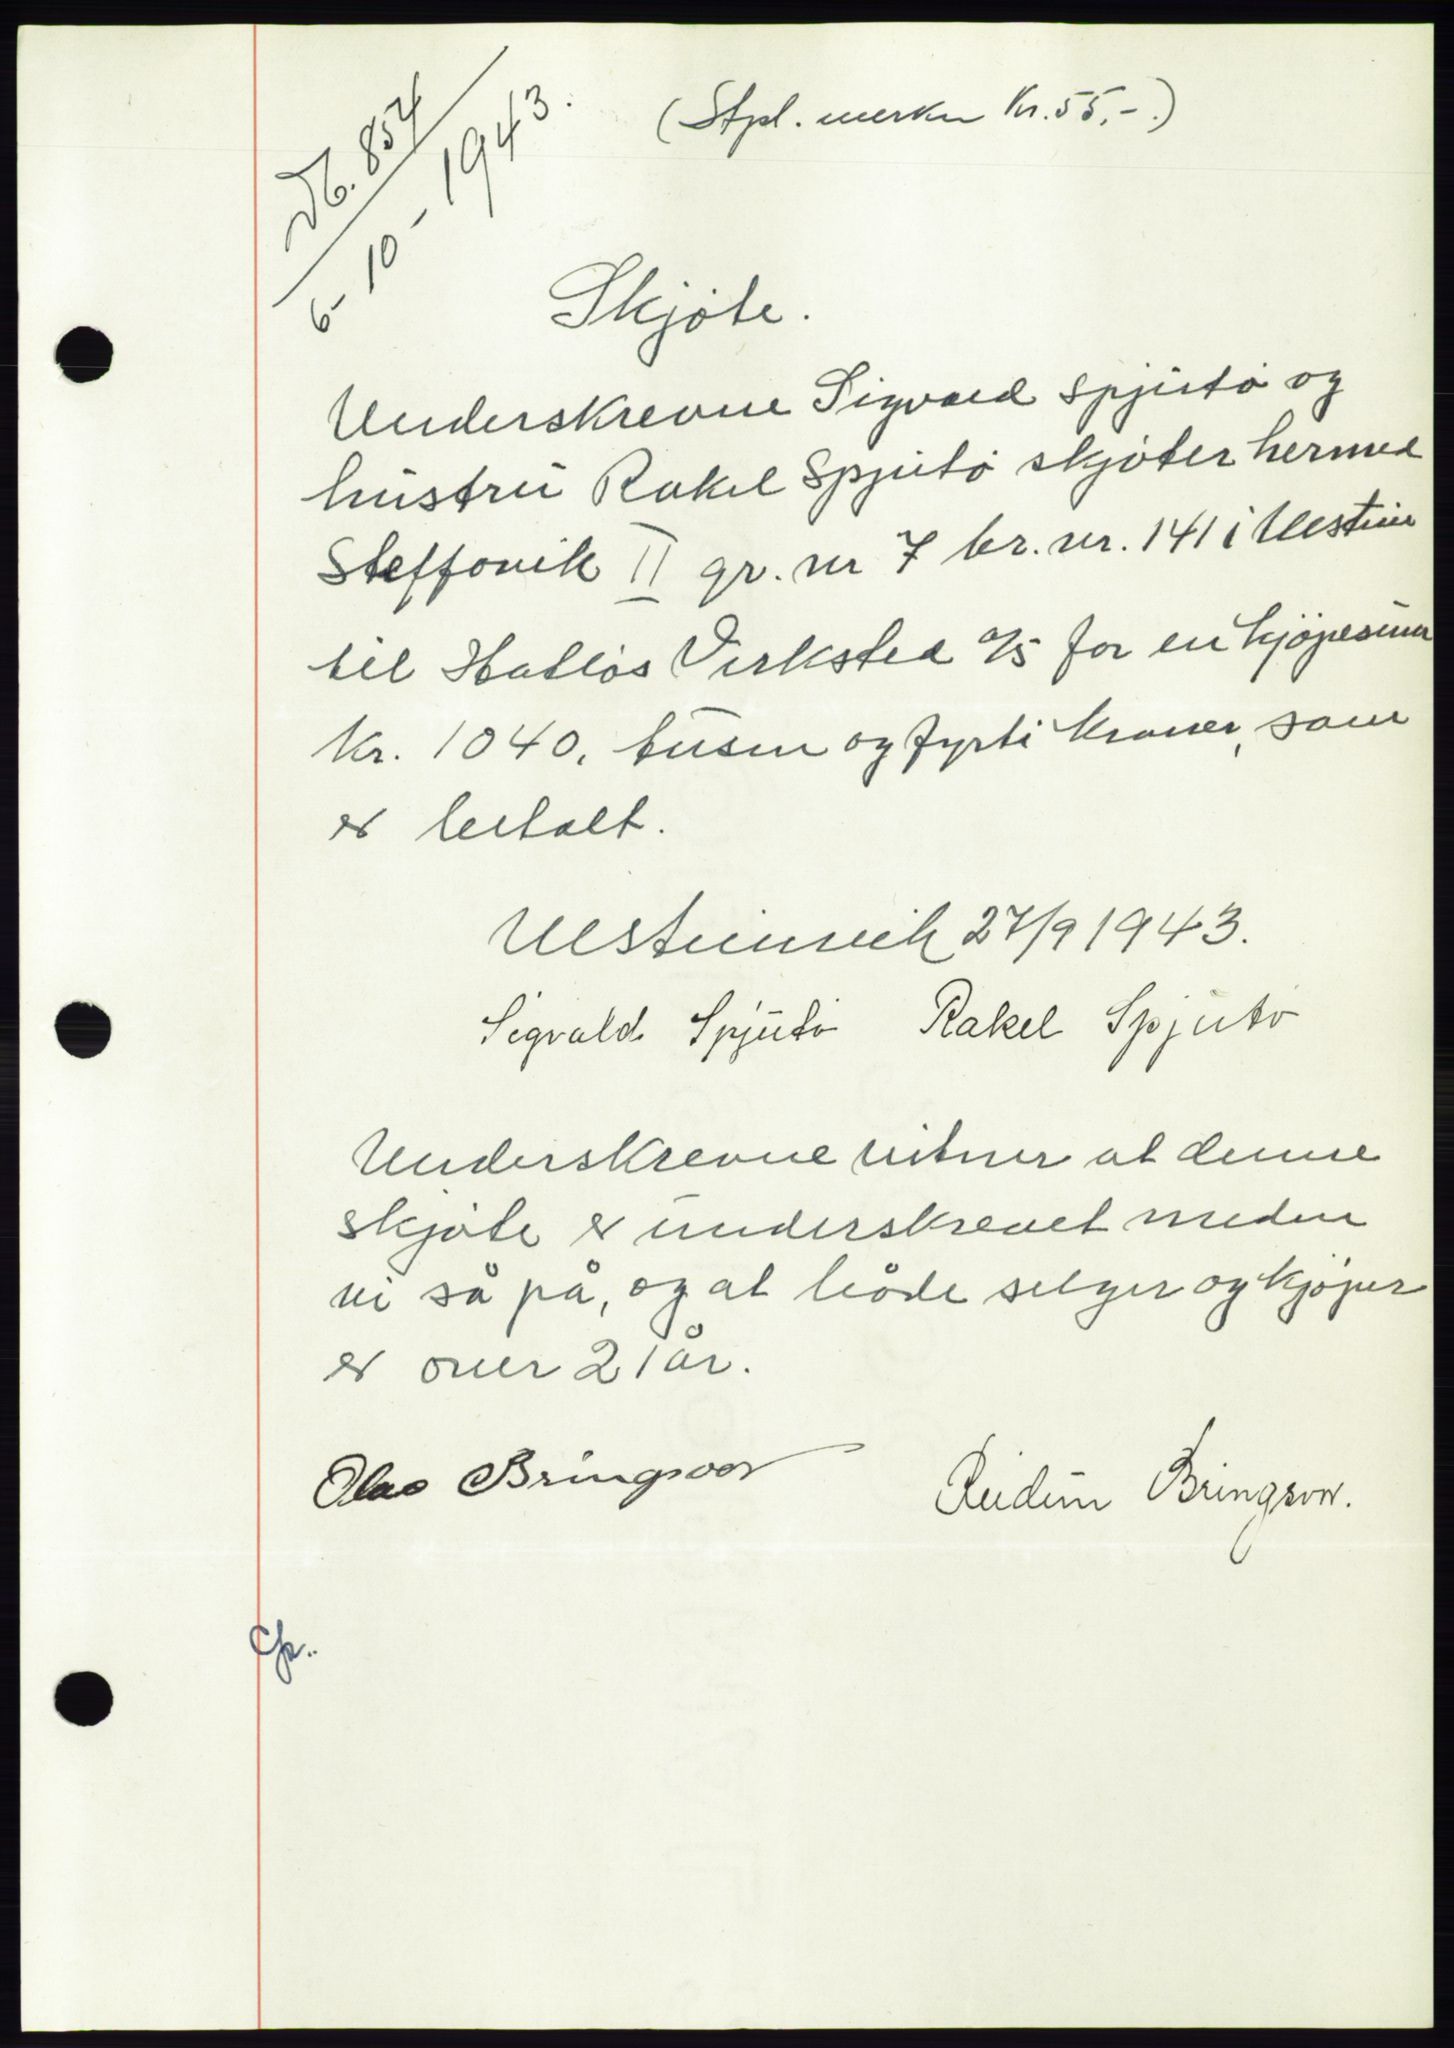 Db. 854
6-10-1943.
(Stpl. merker Kr. 55,-.)
Skjöte.
Underskrevne Sigvald Spjutö og
hustru Rakel Spjutö skjöter hermed
II gr. nr 7 br. nr. 141 i Ulstein
til Hatlös Verksted A/S for en kjöpesum
kr. 1040, tusen og fyrti kroner, som
er betalt.
Ulsteinvik 27/9 1943.
Sigvald Spjutö Rakel Spjutö
Underskrevne vitner at denne
skjöte er underskrevet meden
vi så på, og at både selger og kjöper
er over 21 år.
Olav Bringsvor
Reidun Bringsvor.